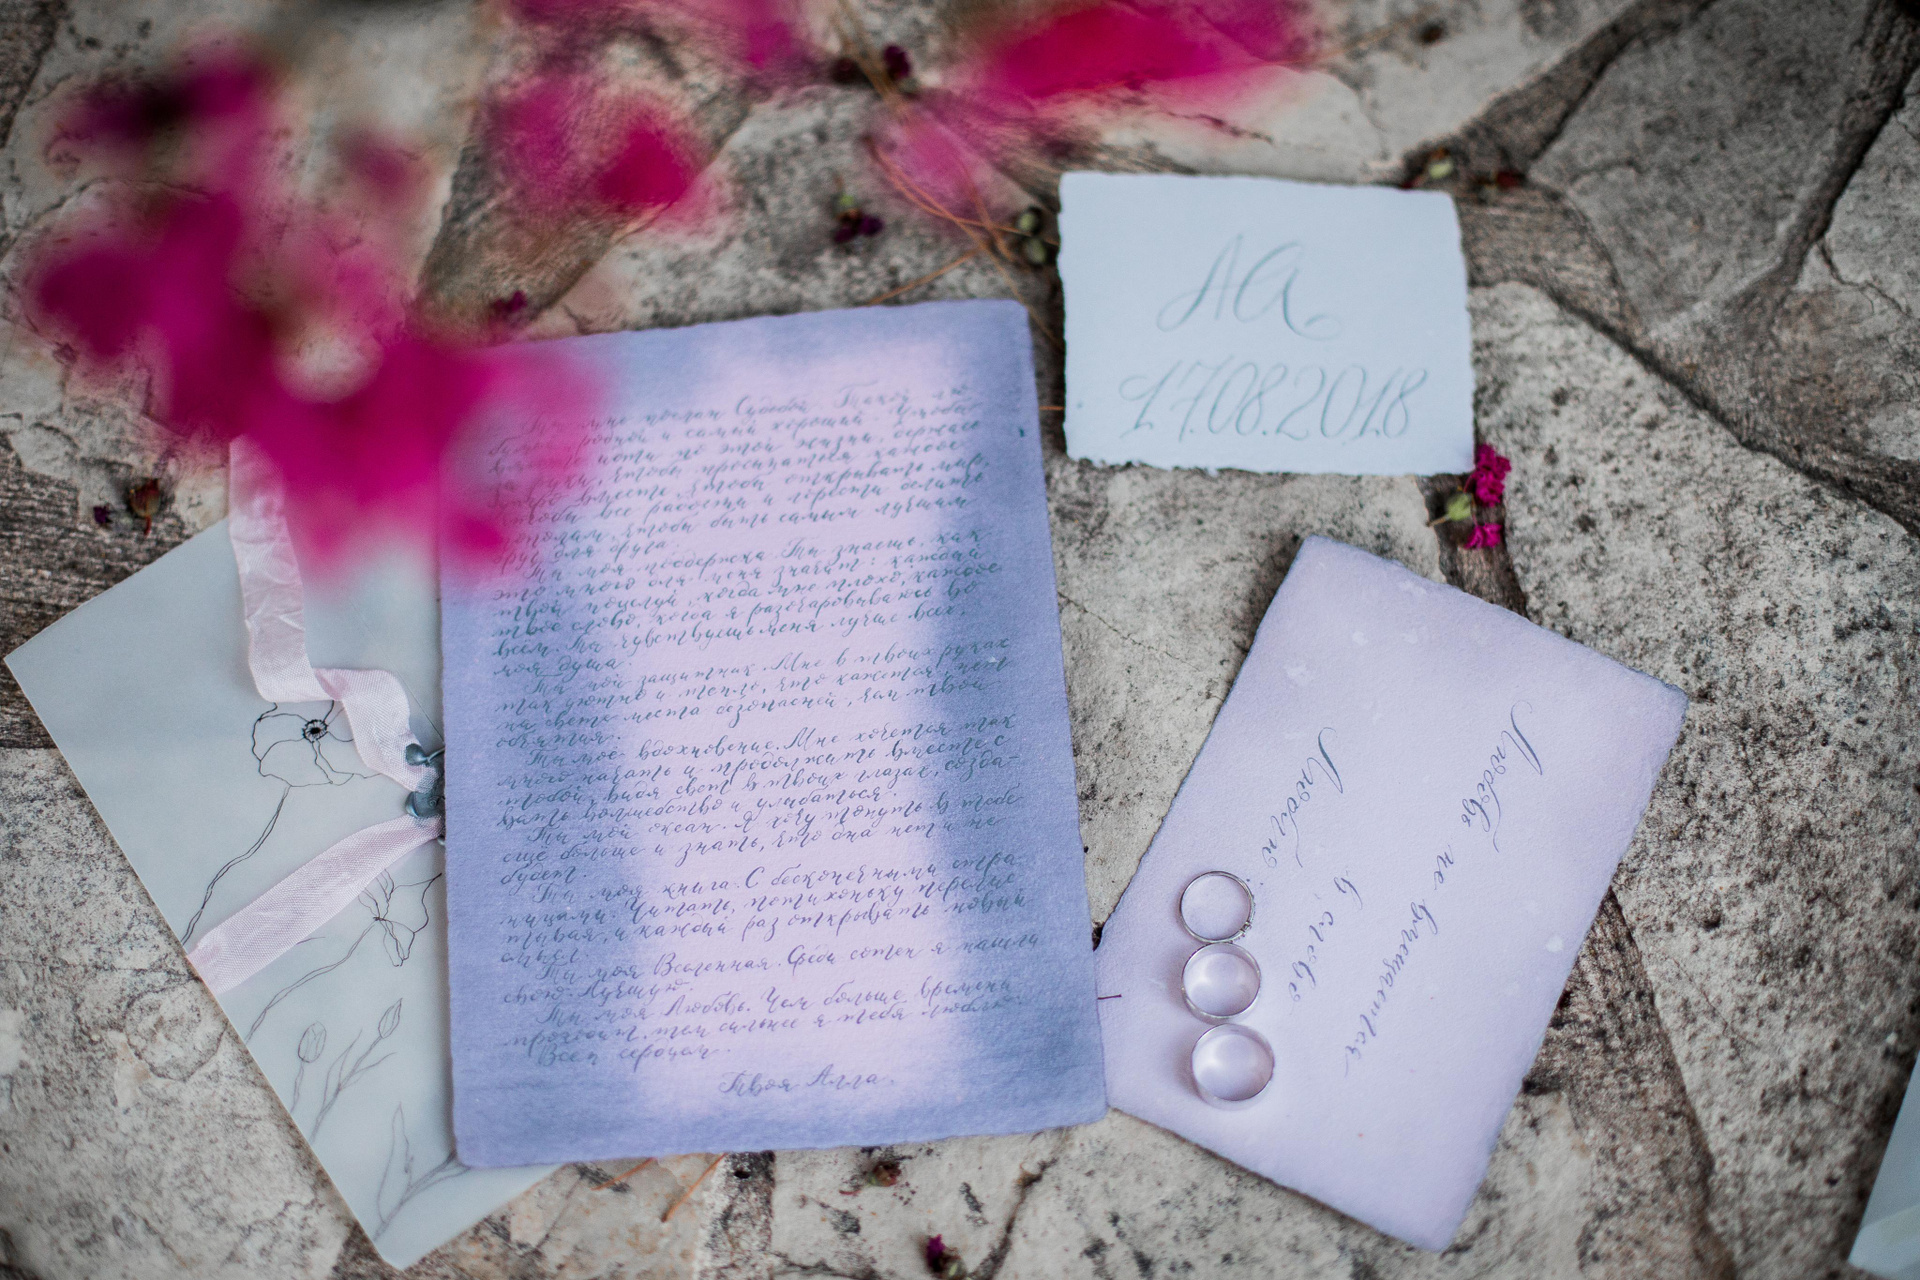 Ты мне послан Судьбой. Такой лю-
бимый, родной и самый хороший. Чтобы
идти по этой жизни, держась
за руки, чтобы просыпаться каждое
утро вместе, чтобы открывать мир,
чтобы все радости и горести делить
пополам, чтобы быть самым лучшим
друг для друга.
Ты моя поддержка. Ты знаешь, как
это много для меня значит: каждый
твой поцелуй, когда мне плохо, каждое
твое слово, когда я разочаровываюсь во
всем. Ты чувствуешь меня лучше всех,
моя душа.
Ты мой защитник. Мне в твоих руках
так уютно и тепло, что кажется, нет
на свете места безопасней, чем твои
объятия.
Ты моё вдохновение. Мне хочется так
много начать и продолжить вместе с
тобой, видя свет в твоих глазах, созда-
вать волшебство и улыбаться.
Ты мой океан. Я хочу тонуть в тебе
еще больше и знать, что дна нет и не
будет.
Ты моя книга. С бесконечными стра-
ницами. Читать, потихоньку перелис-
тывая, и каждый раз открывать новый
смысл.
Ты моя Вселенная. Среди сотен я нашла
свою Лучшую.
Ты моя Любовь. Чем больше времени
проходит, тем сильнее я тебя люблю.
Всем сердцем.
Твоя Алла.
АА
17.08.2018
Любовь не вмещается
в слово
"Люблю"